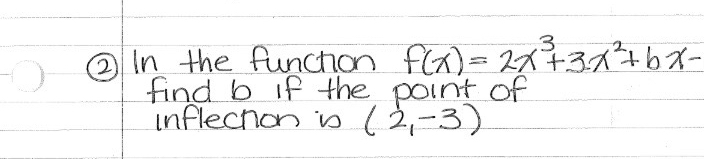 ② In the function f(x) = 2x³+3x²+bx-
find b if the point of
inflection is (2,-3)